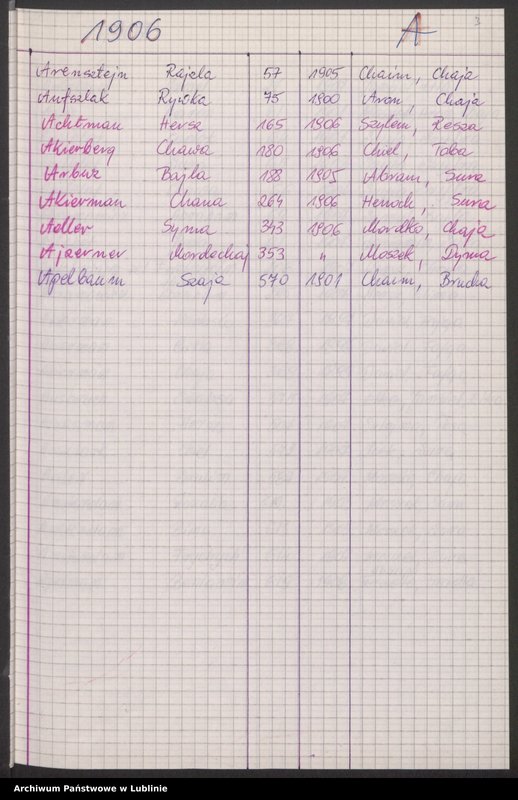 1906 A 3
Arensztejn Rajela 57 1905 Chaim, Chaja
Aufszlak Rywka 75 1900 Aron, Chaja
Achtman Hersz 165 1906 Szylem, Resza
Akierberg Chawa 180 1906 Chiel, Taba
Arbuz Bajla 188 1905 Abram, Sura
Akierman Chana 264 1906 Henoch, Sura
Adler Syma 343 1906 Mordko, Chaja
Ajzerner Mordechaj 353 " Moszek, Dyma
Apelbaum Szaja 570 1901 Chaim, Brucha
Archiwum Państwowe w Lublinie